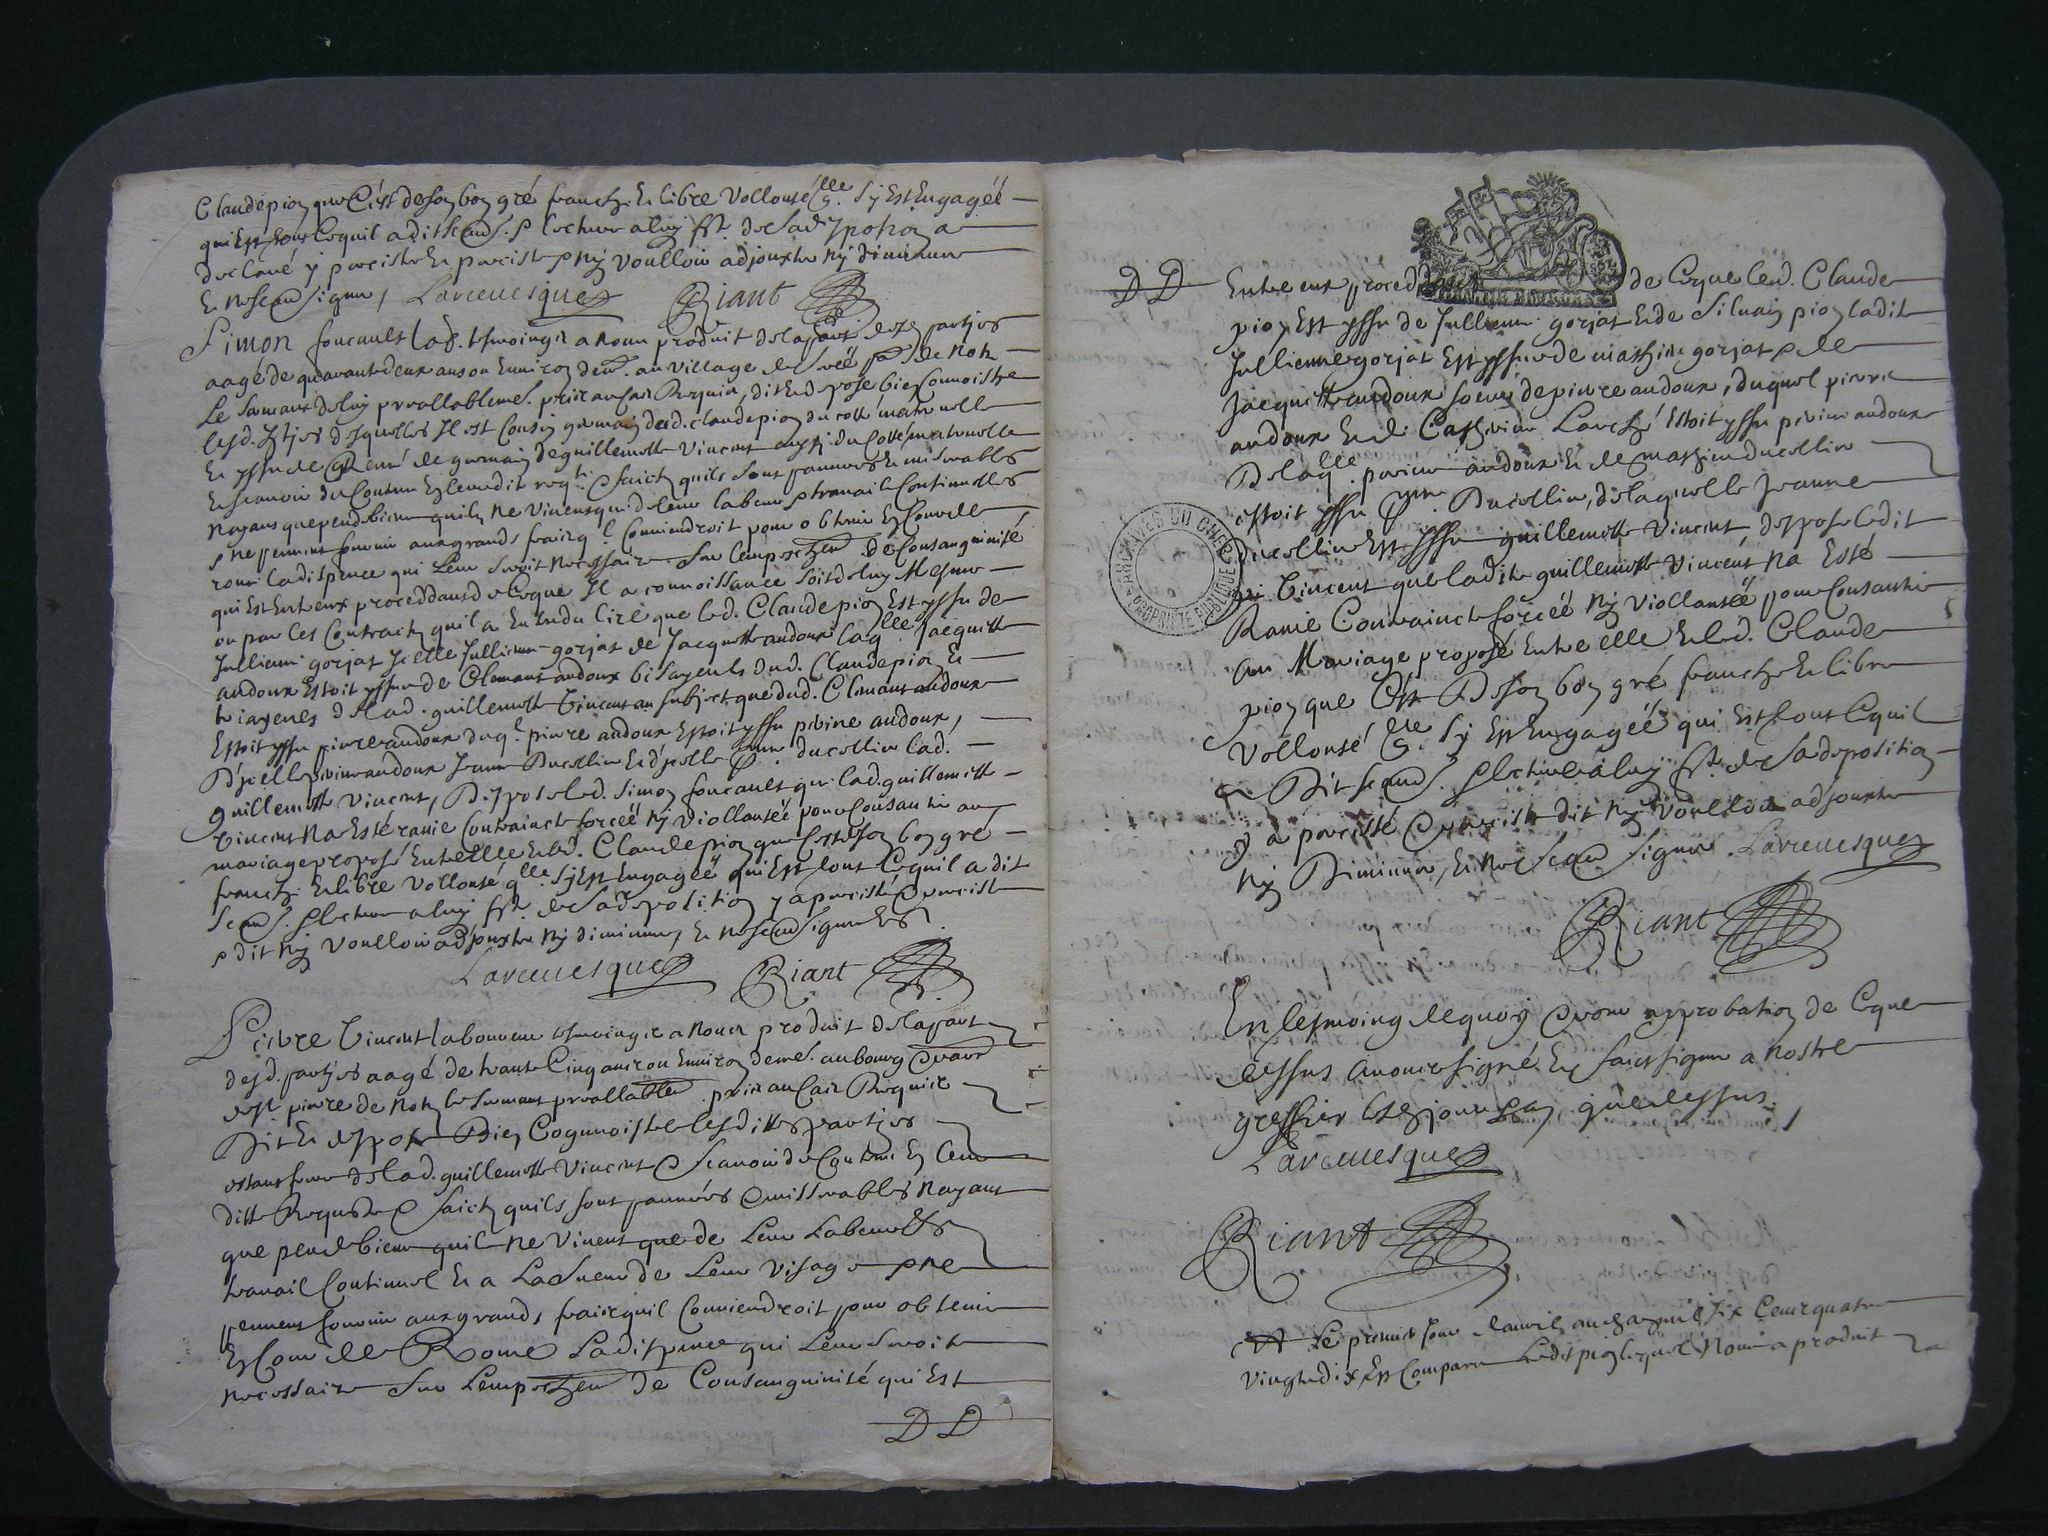 Claude pion que C'est de son bon gré franche & libre Vollonté qlle. sy Est Engagéé
qui Est tout Ce quil a dit scav. lecture a luy fte. de sad ipotion a
declaré y parcister & parciste ny voulloir adjouxter ny diminuer
& ne scavr signer, Larcevesque Riant
Simon foucault lab. tesmoing a nous produit de la part desd. partyes
aagé de quarante deux ans ou Environ demt. au village de psse de Non
le samant de luy preallablemt. pris au Cas Requis, dit & depose bien Connoistre
lesd. ptyes desquelles Il est Cousin germain dud. Claude pion du costé maternelle
& yssu de germain de guillemette Vincent aussi du Costé maternelle
& scavoir du Contenu En leurdit reqte. scait quils sont pauvres & miserables
Nayans que peu de bien quils ne Vivent que de leur labeur & travail Continuelles
& ne peuvent fournir aux grands fraicz ql. Conviendroit pour obtenir En Cour de
rome la dispence qui Leur seroit Necessaire Sur l'empeschent de Consanguinité
qui Est Entr eux proceddans de Ce que Il a connoissance soit de luy Mesme
ou par les Contractz quil a Entendu lire que led. Claude pion Est yssu de
Jullienne gorjat Icelle Jullienne gorjat de Jacquette audoux laqlle. Jacquette
audoux Estoit yssue de Clemant audoux bisayeuls dud. Claude pion &
trisayeuls de lad. guillemette Vincent au subject que dud. Clemant audoux
Estoit yssu pierre audoux duql. pierre audoux Estoit yssu perine audoux,
D'icelle perine audoux Jeanne Ducellier & d'icelle Jeanne ducellier lad.
guillemette Vincent, Depose led. Simon foucault que lad. guillemette
Vincent Na Esté ravie Contrainct forcéé ny Viollantéé pour Consantir au
mariage proposé Entr elle & led. Claude pion que C'est de son bon gré
franche & libre Vollonté qlle. sy Est Engagéé qui Est tout Ce quil a dit
scav. lecture a luy fte. de sa deposition y a parcisté & parciste
& dit ny voulloir adjouxter ny diminuer, & ne scavr signer
Larcevesque Riant
Pierre Vincent laboureur tesmoing a Nous produit de la part
desd. partyes aagé de trante Cinq ans ou Environ demt. au bourg &
st. pierre de Non le sermant preallablemt. pris au Cas Requis
Dit & depose Bien Cognoistre lesdittes partyes
estant frere de lad. guillemette Vincent & scavoir du Contenu En leur
ditte Requeste & scait quils sont pauvres & miserables Nayant
que peu de bien quils ne Vivent que de Leur Labeur &
travail Continuel & a La Sueur de Leur Visage & ne
peuvent fournir aux grands fraicz quil Conviendroit pour obtenir
En Cour de Rome La dispence qui Leur seroit
Necessaire Sur L'empeschent de Consanguinité qui Est
D D
D D Entre eux proceddant de Ce que led. Claude
pion Est yssu de Jullienne gorjat & de Silvain pion ladite
Jullienne gorjat Est yssue de mathieu gorjat & de
Jacquette audoux soeur de pierre audoux, duquel pierre
audoux & de Catherine Estoit yssu perine audoux
De laqlle. perine audoux & de mathieu Ducellier
estoit yssu Jne. Ducellier, de laquelle Jeanne
Ducellier Est yssu guillemette Vincent, depose ledit
Vincent que ladite guillemette Vincent Na Esté
Ravie Contrainct forcéé Ny Viollantéé pour Consantir
Au Mariage proposé Entre elle & led. Claude
pion que C'est De son bon gré franche & libre
Vollonté qlle. Sy Est Engagéé qui Est tout Ce quil
a Dit scav. lecture a luy fte. de sa deposition
y a parcisté & parciste dit Ny Voulloir adjouxter
Ny Diminuer, & Ne scavr signer Larcevesque
Riant
En tesmoing de quoy & pour approbation de Ce que
dessus avons signé & faict signer a nostre
greffier les jour & an que dessus,
Larcevesque
Riant
Le premier jour d'avril audit an mil Six Cens quatre
Vingt dix Est Comparu Ledit pion lequel Nous a produit
ARCHIVES DU CHER
PROPRIÉTÉ PUBLIQUE